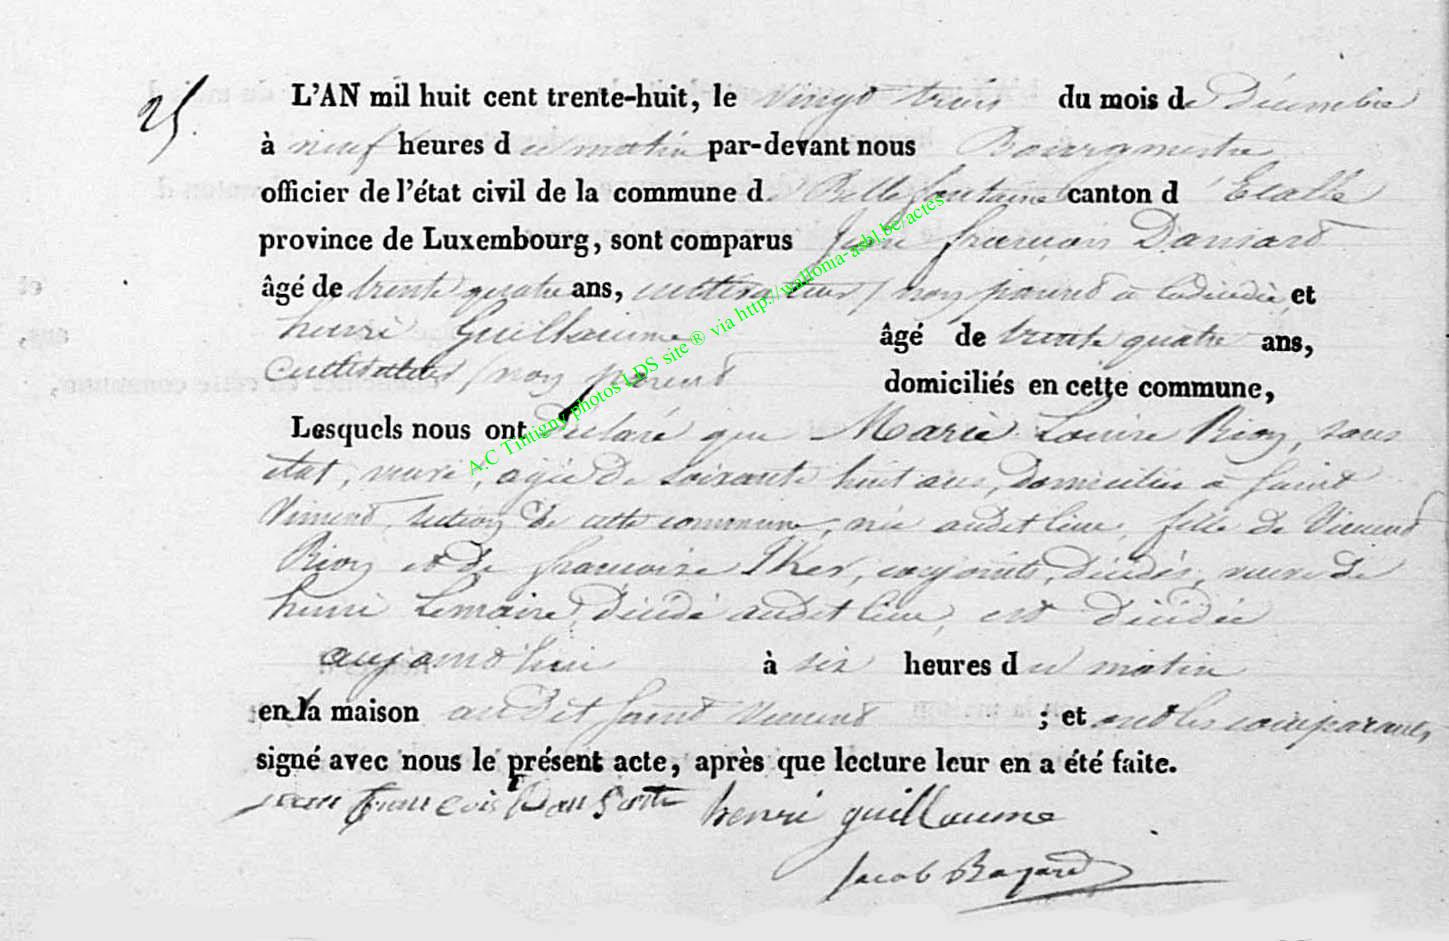 25.
L'AN mil huit cent trente-huit, le vingt trois du mois de Décembre
à neuf heures du matin par-devant nous Bourgmestre
officier de l'état civil de la commune de Bellefontaine canton d'Etalle
province de Luxembourg, sont comparus Jean françois Dansard
âgé de trente quatre ans, cultivateur, non parent à la décédée et
henri Guillaume âgé de trente quatre ans,
Cultivateur, non parent domiciliés en cette commune,
Lesquels nous ont Déclaré que Marie Louise Rion, sans
état, veuve, agée de Soixante huit ans, domiciliée à Saint
Vincent, section de cette commune, née audit lieu, fille de Vincent
Rion et de françoise conjoints, décédés, veuve de
henri Lemaire, décédé audit lieu, est décédée
aujourd'hui à six heures du matin
en la maison audit Saint Vincent ; et ont les comparants
signé avec nous le présent acte, après que lecture leur en a été faite.
jean françois Dansart henri guillaume
Jacob Bayard
A.C Tintigny photos LDS site ® via http://wallonia-asbl.be/actes